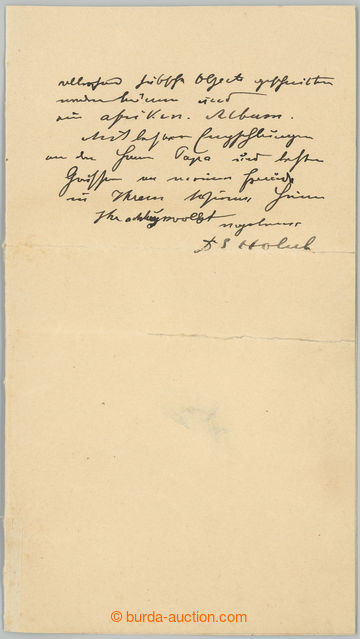 hübsche Objecte geschnitten
werden können und
ein afrikan. Album.
Mit besten Empfehlungen
an den Herrn Papa und besten
Grüßen an meinen Freund
in Ihrem
Ihr achtungsvollst
Dr E Holub
© burda-auction.com